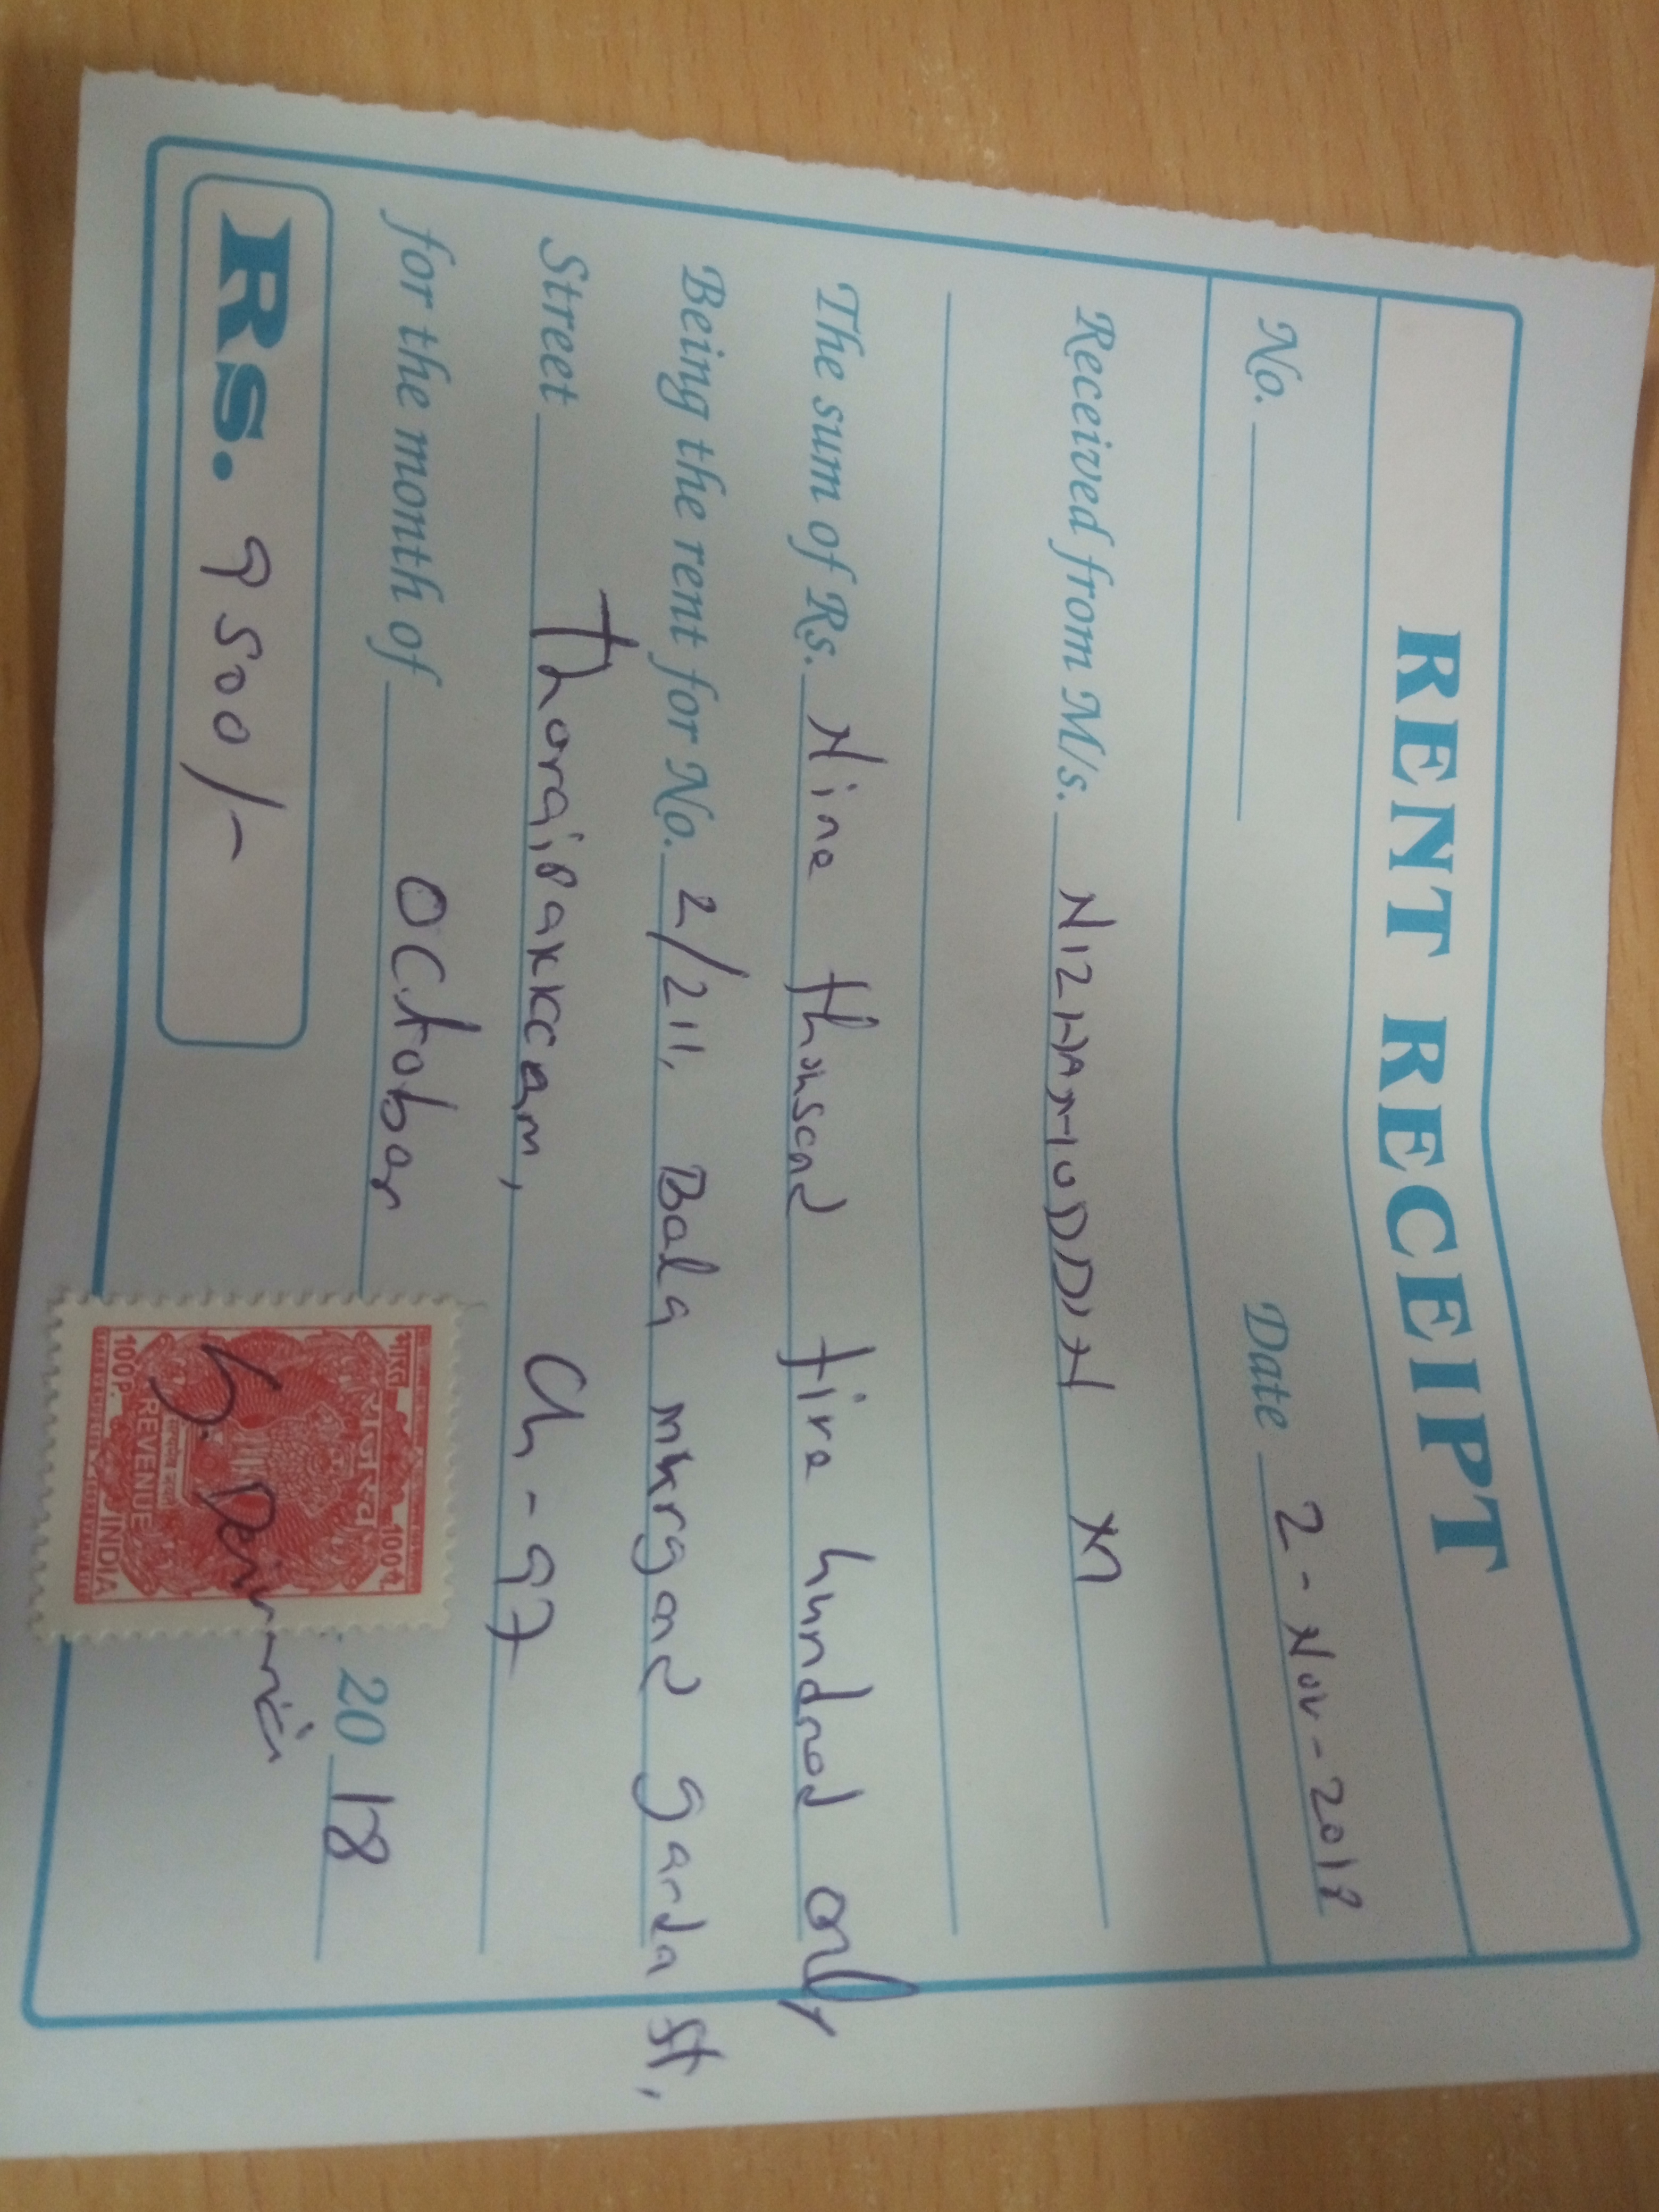 RENT RECEIPT
No. Date 2-Nov-2018
Received from M/s. NIZHAMUDDIN M
The sum of Rs. Nine thousand five hundred only
Being the rent for No. 2/211, Bala murgand garda st,
Street Thoraipakkam, Ch-97
for the month of October 2018
Rs. 9500/-
भारत 100 पै.
राजस्व
REVENUE
100P. INDIA